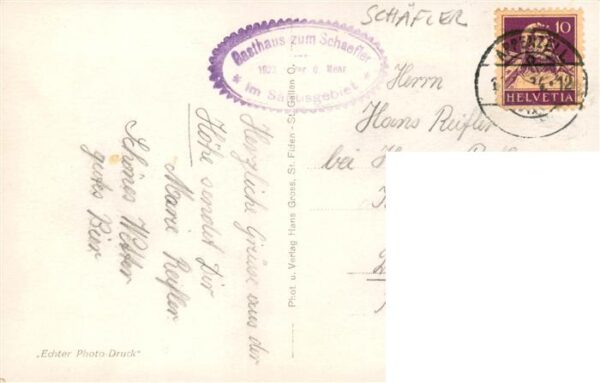 SCHÄFLER
Gasthaus zum Schaefler
1923 Meter ü. Meer
* im Säntisgebiet *
10
HELVETIA
APPENZELL
Herrn
Hans Reifler
bei
Herzliche Grüsse aus der
Höhe sendet Dir
Marie Reifler
Schönes Wetter
gutes Bier
Phot. u. Verlag Hans Gross, St. Fiden - St. Gallen O.
„Echter Photo-Druck"